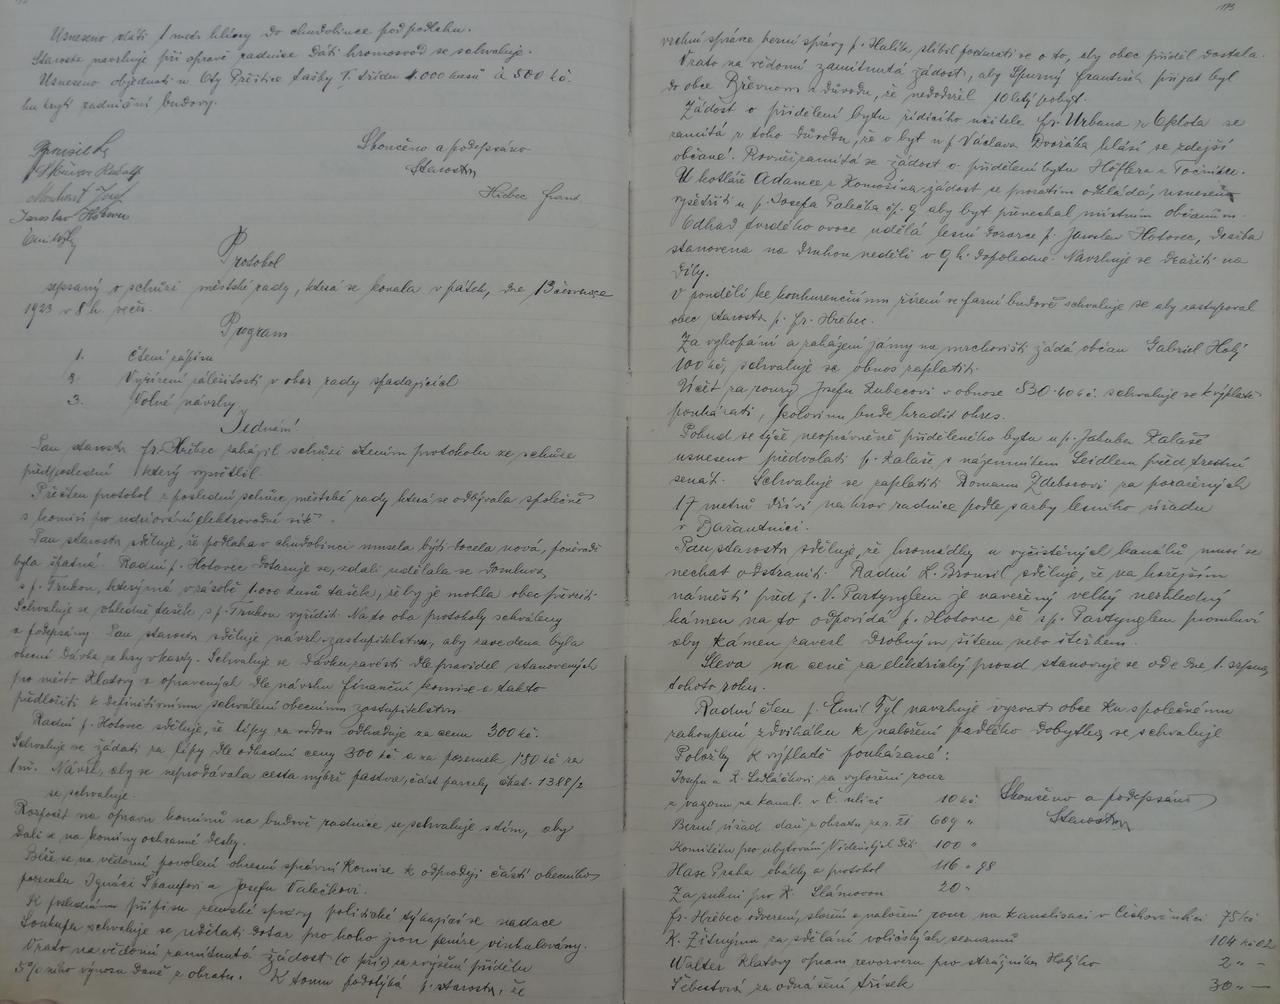 Usneseno dáti 1 metr hlíny do chudobince pod podlahu.
Starosta navrhuje při opravě radnice dáti hromosvod se schvaluje.
Usneseno objednati u Oty Přeštice tašky I. třídu 4.000 kusů à 500 kč.
ku krytí radniční budovy.
Brousil K.
Rudolf
Josef
Jaroslav Hotovec
Emil Tyl
Skončeno a podepsáno
Starosta
Hřebec Frant.
Protokol
sepsaný o schůzi městské rady, která se konala v pátek, dne 13 července
1923 v 8 h. večer.
Program
1. Čtení zápisu
2. Vyřízení záležitostí v obor rady spadajících
3. Volné návrhy
Jednání
Pan starosta Fr. Hřebec zahájil schůzi čtením protokolu ze schůze
předposlední který vysvětlil.
Přečten protokol z poslední schůze městské rady která se odbývala společně
s komisí pro udržování elektrovodné sítě.
Pan starosta sděluje, že podlaha v chudobinci musela býti docela nová, poněvadž
byla špatná. Radní p. Hotovec dotazuje se, zdali udělala se domluva
s p. Trukou, který má v zásobě 1.000 kusů tašek, že by je mohla obec převzíti.
Schvaluje se ohledně tašek s p. Trukou vyříditi. Na to oba protokoly schváleny
a podepsány. Pan starosta sděluje návrh zastupitelstva, aby zavedena byla
obecní dávka ze hry v karty. Schvaluje se dávku zavésti dle pravidel stanovených
pro město Klatovy a opravených dle návrhu finanční komise a takto
předložiti k definitivnímu schválení obecnímu zastupitelstvu.
Radní p. Hotovec sděluje, že lípy za vodou odhaduje za cenu 300 kč.
Schvaluje se žádati za lípy dle odhadní ceny 300 kč a za pozemek 1.80 kč za
1 m. Návrh, aby se neprodávala cesta nýbrž pastva, část parcely čkat. 1388/2
se schvaluje.
Rozpočet na opravu komínů na budově radnice se schvaluje s tím, aby
dali se na komíny ochranné desky.
Béře se na vědomí povolení okresní správní komise k odprodeji části obecního
pozemku Ignáci a Josefu Valečkovi.
K poslednímu přípisu zemské správy politické týkající se nadace
Soukupa schvaluje se učiniti dotaz pro koho jsou peníze vinkulovány.
Vzato na vědomí zamítnutá žádost (o přís) za zvýšení přídělu
5% ního výnosu daně z obratu. K tomu podotýká p. starosta, že
173
vrchní správce berní správy p. Halík slíbil postarati se o to, aby obec příděl dostala.
Vzato na vědomí zamítnutá žádost, aby Spurný František přijat byl
do obce Břevnov z důvodu, že nedodržel 10 letý pobyt.
Žádost o přidělení bytu řídícího učitele Fr. Urbana z Oplota se
zamítá z toho důvodu, že o byt u p. Václava Dvořáka hlásí se zdejší
občané. Rovněž zamítá se žádost o přidělení bytu Höflera z Točnice.
U kotláře Adamce z Komošína žádost se prozatím odkládá, usneseno
vyšetřiti u p. Josefa Palečka čp. 9 aby byt přenechal místním občanům.
Odhad tvrdého ovoce udělá lesní dozorce p. Jaroslav Hotovec, dražba
stanovena na druhou neděli v 9 h. dopoledne. Navrhuje se dražiti na
díly.
V pondělí ke konkurenčnímu řízení ve farní budově schvaluje se aby zastupoval
obec starosta p. Fr. Hřebec.
Za vykopání a zaházení jámy na mrchovišti žádá občan Gabriel Holý
100 kč, schvaluje se obnos zaplatiti.
Účet za roury Josefu Zubecovi v obnose 830.40 kč. schvaluje se k výplatě
poukázati, polovinu bude hradit okres.
Pokud se týče neoprávněně přiděleného bytu u p. Jakuba Kalaše
usneseno předvolati p. Kalaše s nájemníkem Seidlem před trestní
senát. Schvaluje se zaplatiti Romanu Zdeborovi za poražených
17 metrů dříví na krov radnice podle sazby lesního úřadu
v Bažantnici.
Pan starosta sděluje, že hromádky u vyčistěných kanálů musí se
nechat odstraniti. Radní K. Brousil sděluje, že na hořejším
náměstí před p. V. Partynglem je navežený velký nevzhledný
kámen na to odpovídá p. Hotovec že s p. Partynglem promluví
aby kámen zavezl drobným sítem nebo štěrkem.
Sleva na ceně za elektrický proud stanovuje se ode dne 1. srpna
tohoto roku.
Radní člen p. Emil Tyl navrhuje vyzvat obce ku společnému
zakoupení zdviháku k naložení padlého dobytka, se schvaluje
Položky k výplatě poukázané:
Josefu a K. Sedláčkovi za vyložení rour
z vagonu na kanal. v Č. ulici 10 kč
Berní úřad daň z obratu za r. 609 „
Komitétu pro ubytování Vídeňských dětí 100 „
Hase Praha obálky a protokol 116 „ 98
Za sukni pro K. Slámovou 20 „
Fr. Hřebec odvezení, složení a naložení rour na kanalisaci v Ciskově ulici 75 kč
K. Žitnýmu za sdělání voličských seznamů 104 kč 02
Walter Klatovy opravu revorveru pro strážníka Holýho 2 „ –
Šebestová za odnášení třísek 30 „ –
Skončeno a podepsáno
Starosta